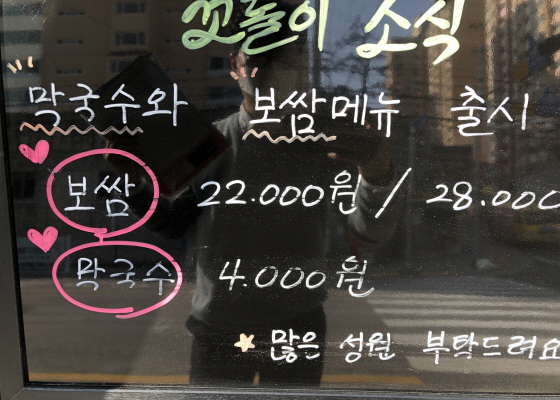 꼿돌이 소식
막국수와 보쌈메뉴 출시
보쌈 22.000원 / 28.000
막국수 4.000원
많은 성원 부탁드려요